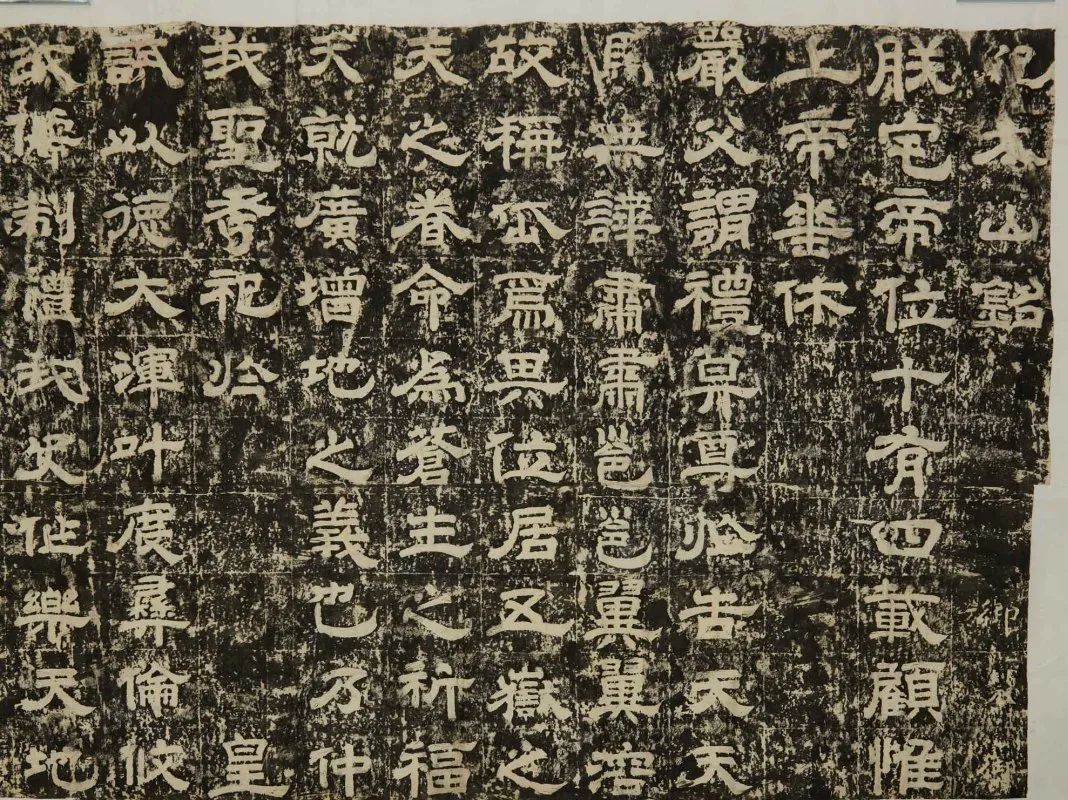 紀太山銘　御製御
朕宅帝位十有四載顧惟
上帝垂休
嚴父謂禮莫尊於告天天
馬無譁肅肅邕邕翼翼溶
故稱岱為異位居五嶽之
天之眷命為蒼生之祈福
夫就廣增地之義也乃仲
我聖考祀於　皇
試以德大渾叶度彝倫攸
我儒制禮我史作樂天地